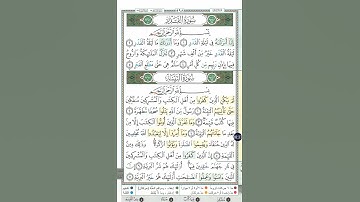 سُورَةُ القَدْرِ
بِسْمِ ٱللَّهِ ٱلرَّحْمَٰنِ ٱلرَّحِيمِ
إِنَّا أَنزَلْنَٰهُ فِى لَيْلَةِ ٱلْقَدْرِ ١ وَمَا أَدْرَىٰكَ مَا لَيْلَةُ ٱلْقَدْرِ ٢
لَيْلَةُ ٱلْقَدْرِ خَيْرٌ مِّنْ أَلْفِ شَهْرٍ ٣ تَنَزَّلُ ٱلْمَلَٰٓئِكَةُ وَٱلرُّوحُ
فِيهَا بِإِذْنِ رَبِّهِم مِّن كُلِّ أَمْرٍ ٤ سَلَٰمٌ هِىَ حَتَّىٰ مَطْلَعِ ٱلْفَجْرِ ٥
سُورَةُ البَيِّنَةِ
بِسْمِ ٱللَّهِ ٱلرَّحْمَٰنِ ٱلرَّحِيمِ
لَمْ يَكُنِ ٱلَّذِينَ كَفَرُوا۟ مِنْ أَهْلِ ٱلْكِتَٰبِ وَٱلْمُشْرِكِينَ مُنفَكِّينَ
حَتَّىٰ تَأْتِيَهُمُ ٱلْبَيِّنَةُ ١ رَسُولٌ مِّنَ ٱللَّهِ يَتْلُوا۟ صُحُفًا مُّطَهَّرَةً ٢
فِيهَا كُتُبٌ قَيِّمَةٌ ٣ وَمَا تَفَرَّقَ ٱلَّذِينَ أُوتُوا۟ ٱلْكِتَٰبَ إِلَّا مِنۢ
بَعْدِ مَا جَآءَتْهُمُ ٱلْبَيِّنَةُ ٤ وَمَآ أُمِرُوٓا۟ إِلَّا لِيَعْبُدُوا۟ ٱللَّهَ
مُخْلِصِينَ لَهُ ٱلدِّينَ حُنَفَآءَ وَيُقِيمُوا۟ ٱلصَّلَوٰةَ وَيُؤْتُوا۟ ٱلزَّكَوٰةَ وَذَٰلِكَ دِينُ
ٱلْقَيِّمَةِ ٥ إِنَّ ٱلَّذِينَ كَفَرُوا۟ مِنْ أَهْلِ ٱلْكِتَٰبِ وَٱلْمُشْرِكِينَ
فِى نَارِ جَهَنَّمَ خَٰلِدِينَ فِيهَآ أُو۟لَٰٓئِكَ هُمْ شَرُّ ٱلْبَرِيَّةِ ٦ إِنَّ ٱلَّذِينَ
ءَامَنُوا۟ وَعَمِلُوا۟ ٱلصَّٰلِحَٰتِ أُو۟لَٰٓئِكَ هُمْ خَيْرُ ٱلْبَرِيَّةِ ٧